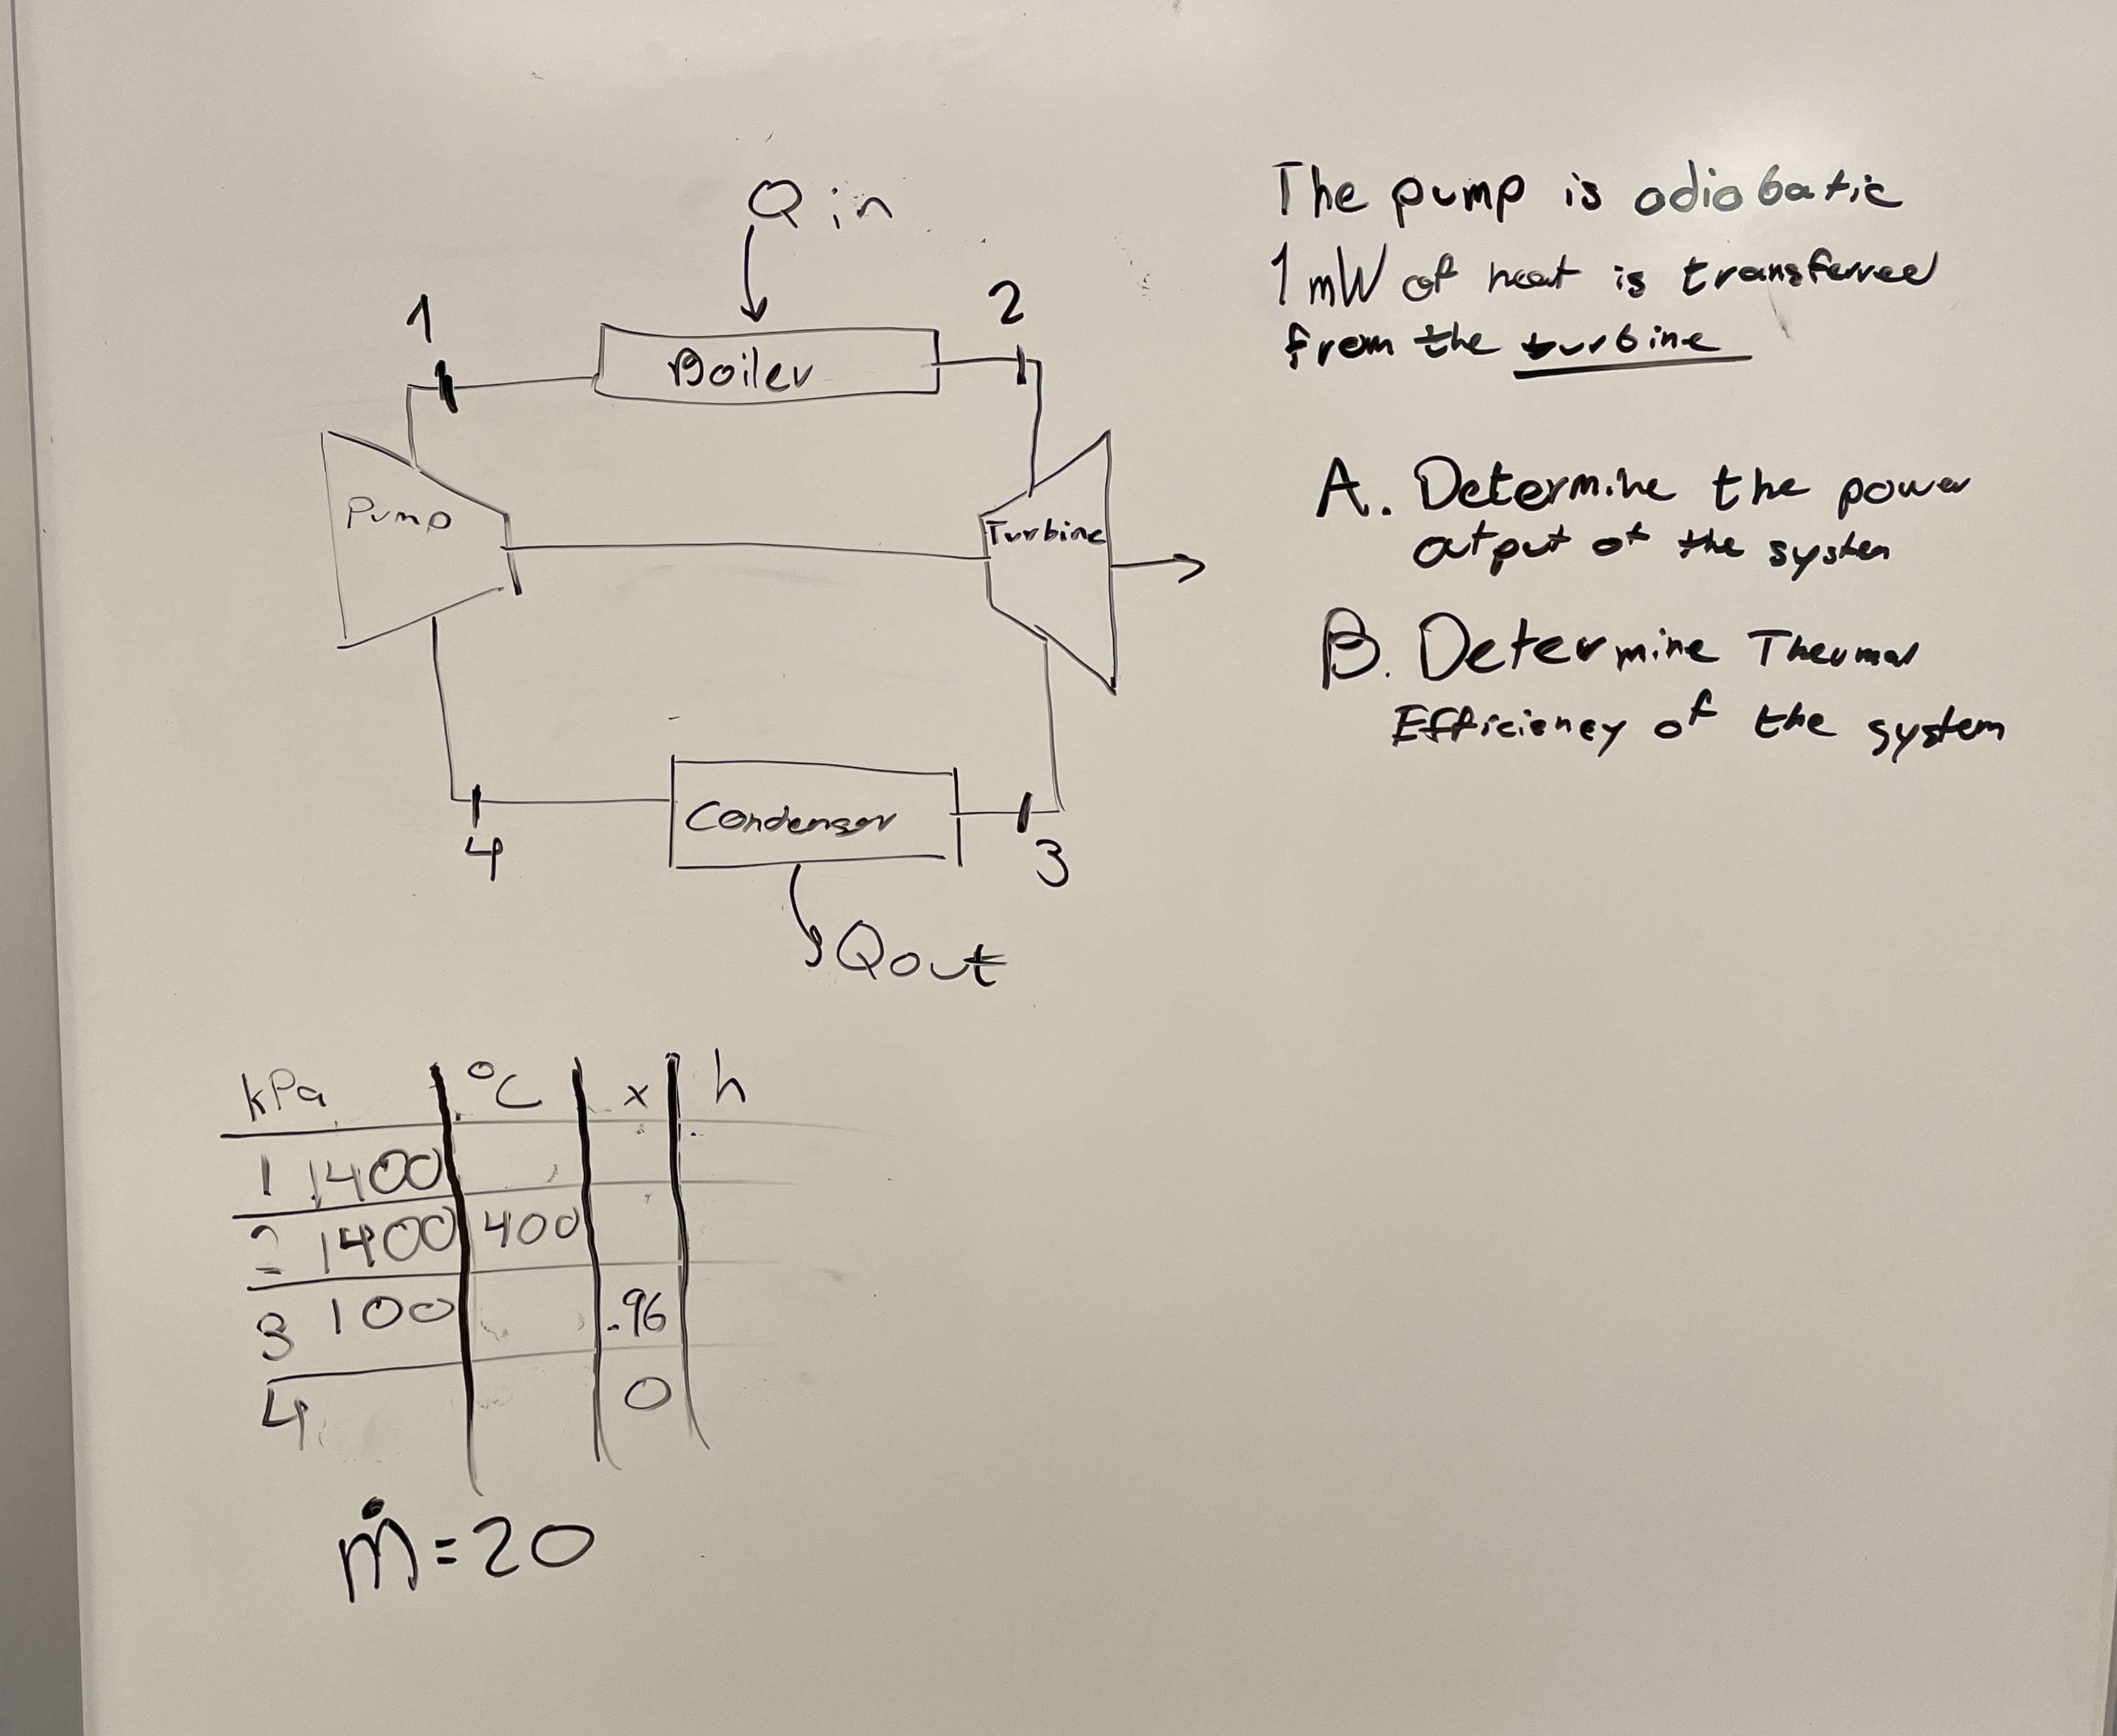 Q in
1
2
Boiler
Pump
Turbine
Condensor
4
3
Qout
The pump is adiabatic
1 mW of heat is transferred
from the turbine
A. Determine the power
output of the system
B. Determine Thermal
Efficieney of the system
kPa °C x h
1 1400
2 1400 400
3 100 .96
4 0
ṁ=20